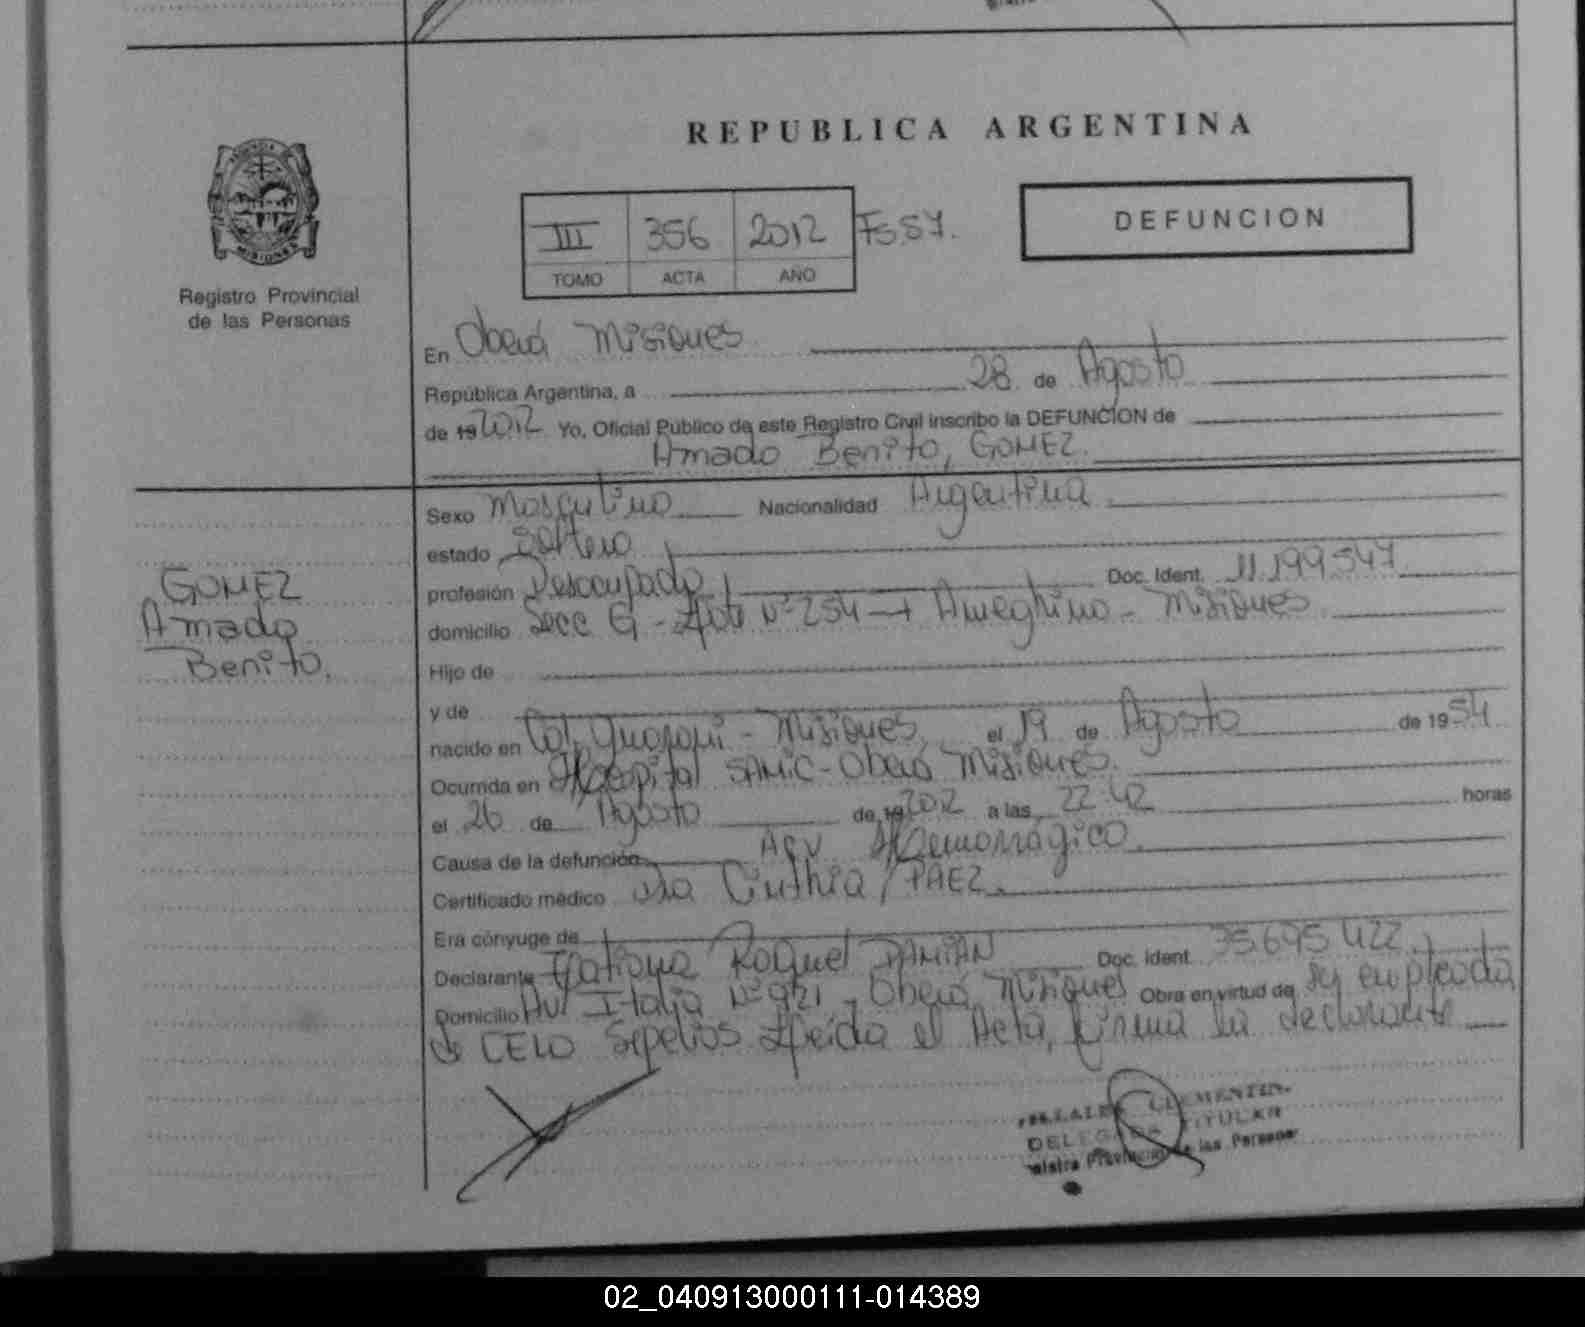 REPUBLICA ARGENTINA
MISIONES
Registro Provincial
de las Personas
III 356 2012 Fs.57.
TOMO ACTA AÑO
DEFUNCION
En Oberá Misiones
República Argentina, a 28 de Agosto
de 19 2012 Yo, Oficial Público de este Registro Civil inscribo la DEFUNCION de
Amado Benito, GOMEZ.
GOMEZ
Amado
Benito.
Sexo Masculino Nacionalidad Argentina
estado Soltero
profesión Desocupado Doc. Ident. 11.199.547
domicilio Secc G - Lote Nº 254 Ameghino - Misiones
Hijo de
y de
nacido en Col. Guarani - Misiones el 19 de Agosto de 1954
Ocurrida en Hospital SAMIC - Oberá Misiones.
el 26 de Agosto de 19 2012 a las 22:42 horas
Causa de la defunción ACV Hemorrágico.
Certificado médico Dra Cinthia PAEZ.
Era cónyuge de
Declarante Tatiana Raquel DAMIAN Doc. Ident. 35.695.422
Domicilio Av. Italia Nº 921 - Oberá, Misiones Obra en virtud de ser empleada
de CELO Sepelios Leida el Acta, firma la declarante
CLEMENTIN
DELEGADA TITULAR
Provincial de las Personas
02_040913000111-014389